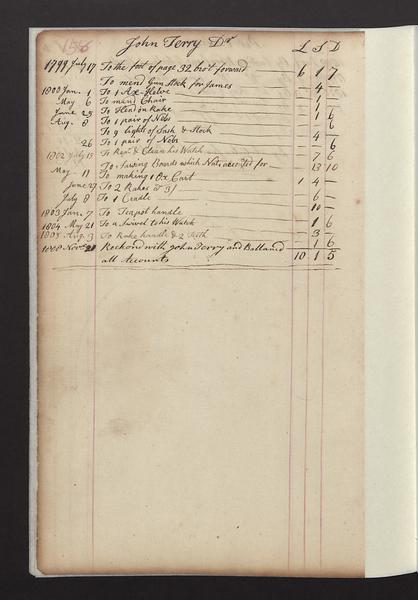 156
John Terry Dr L S D
1799 July 17 To the foot of page 32 brot forward 6 1 7
To mend Gun Stock for James 4
1800 Jan. 1 To 1 Ax-Helve 1
May 6 To mend Chair 1
June 25 To Head on Rake 1 6
Aug. 8 To 1 pair of Nebs 6
To 9 lights of Sash & Stock 4
26 To 1 pair of Nebs 6
1802 July 13 To Repr. & Clean his Watch 7 6
To Sawing Boards which Not accoted for 13 10
May 11 To making 1 Ox Cart 1 4
June 27 To 2 Rakes @ 3/ 6
July 8 To 1 Cradle 10
1803 Jan. 7 To Teapot handle
1804 May 21 To a Swivel to his Watch 1 6
1805 Aug. 3 To Rake handle & 2 Teeth 3
1808 Novr 28 Reckond with John Terry and Ballancd 1 6
all Accounts 10 1 5